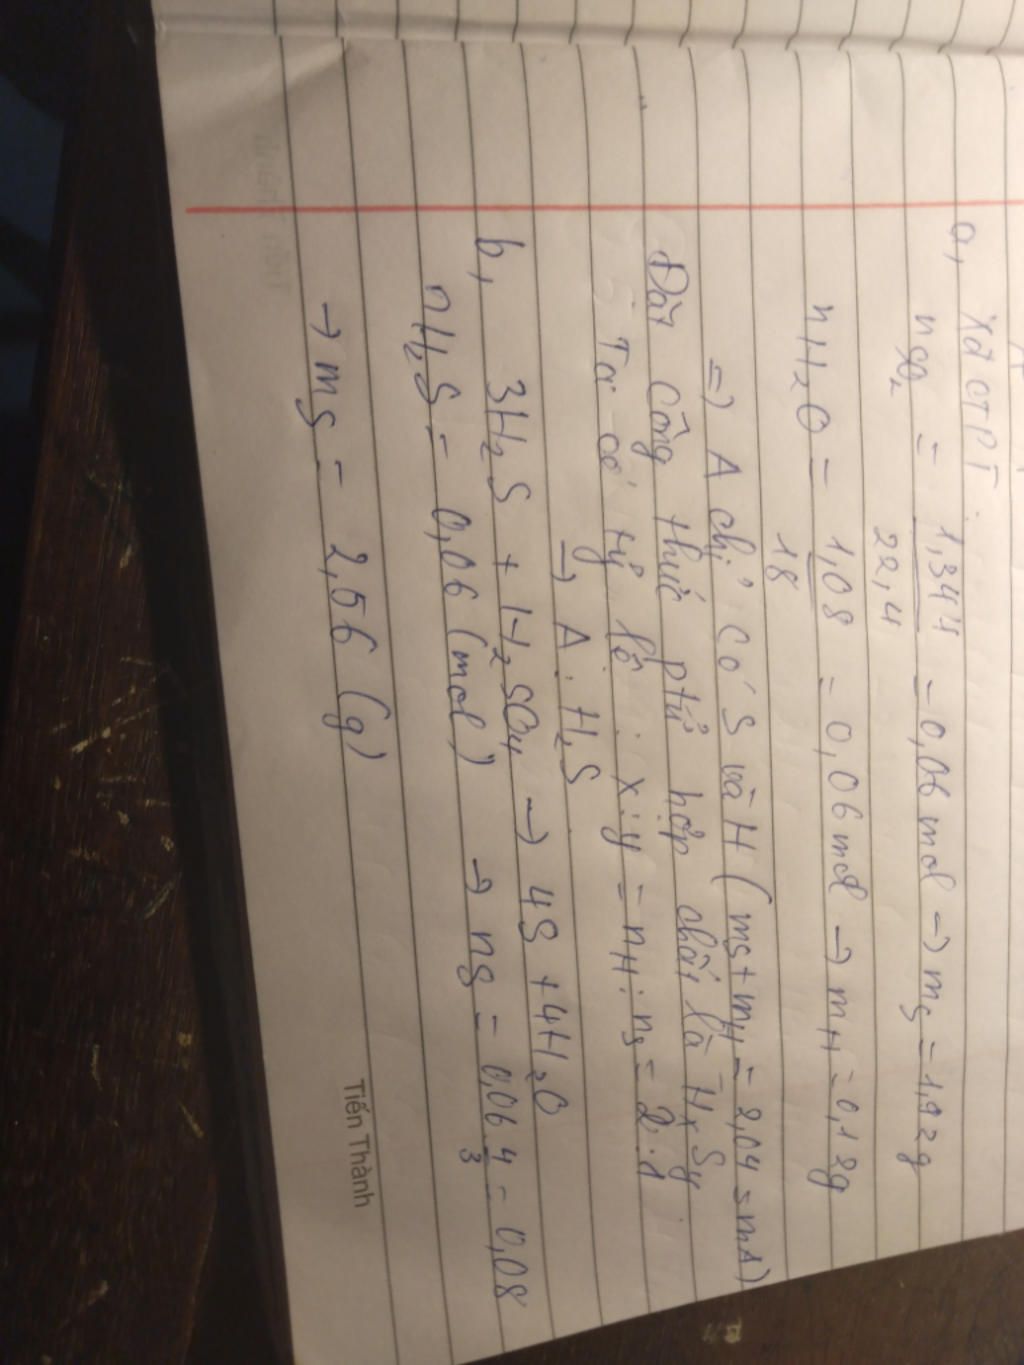 a, Xđ CTPT
nSO2 = 1,344 / 22,4 = 0,06 mol → mS = 1,92g
nH2O = 1,08 / 18 = 0,06 mol → mH = 0,12g
=) A chỉ có S và H (mS + mH = 2,04 = mA)
Đặt công thức ptử hợp chất là HxSy
Ta có tỷ lệ : x:y = nH : nS = 2:1
→ A : H2S
b, 3H2S + H2SO4 → 4S + 4H2O
nH2S = 0,06 (mol) → nS = 0,06 4 / 3 = 0,08
→ mS = 2,56 (g)
Tiến Thành